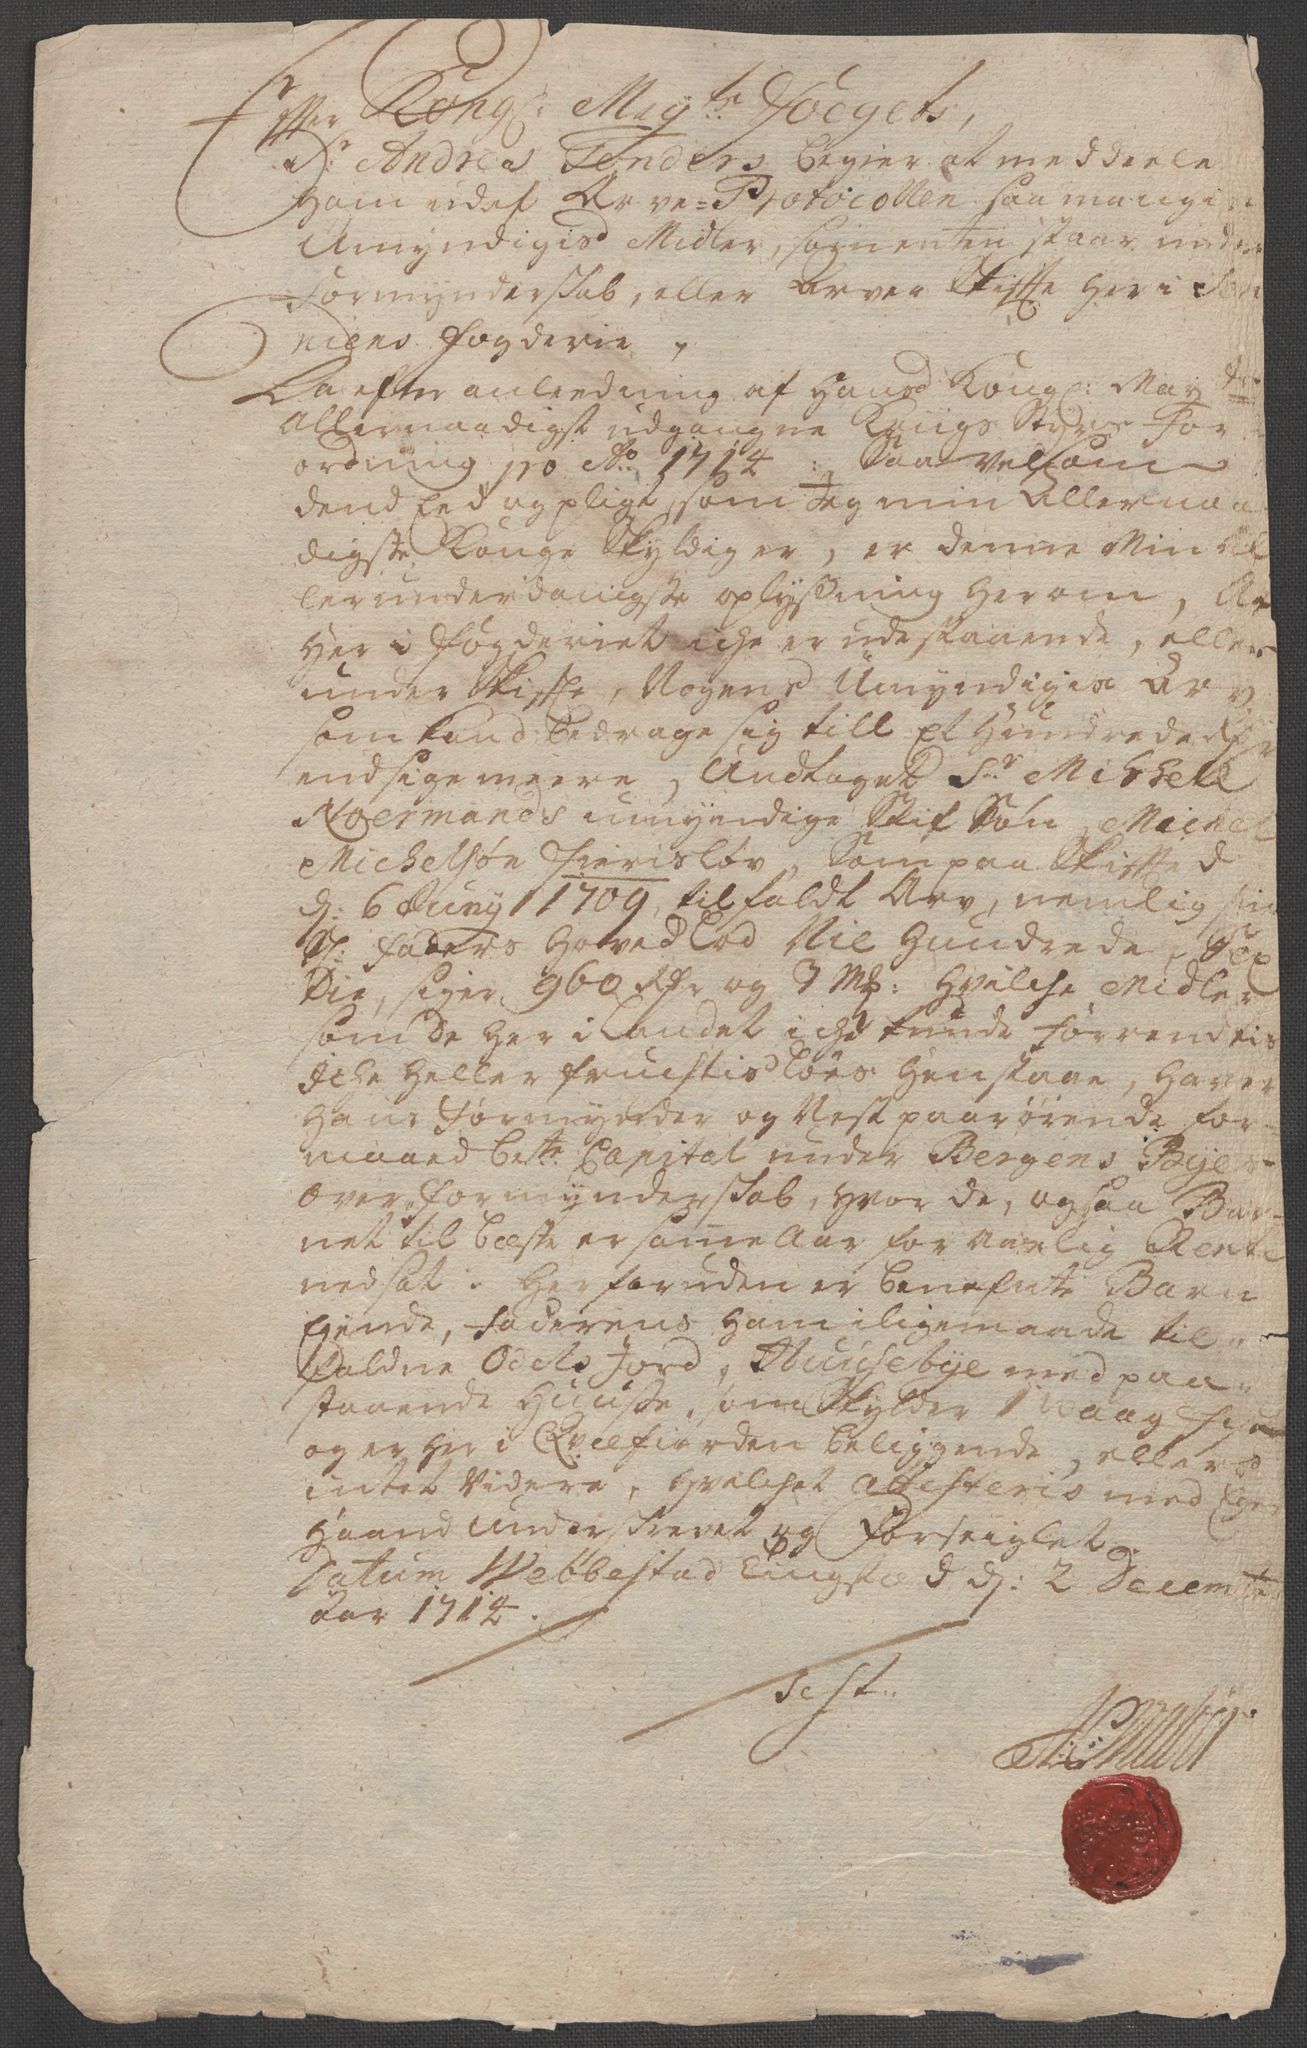 Efter Kongl: Mayts Foegets,
Sr Andreas Tønders begier at meddeele
ham udaf Arve=Protocollen saa mangen
Umyndigis Midler, som enten staar under
Formynderskab, eller Arver Skiffte her i Sen
niens fogderie,
Da efter anledning af Hans Kongl: Mayts
Allernaadigst udgangne Krigs Styrs For
ordning pro Ao 1712: Saavelsom
dend Eed og pligt, som Jeg min Allernaa
digste Konge Skyldig er, er denne Min Al
lerunderdanigste oplysning herom, At
her i Fogderiet iche er udestaaende, eller
under Skiffte, Nogens Umyndigis Arv
som kand bedrage sig till Et Hundrede Rdr
endsige meere, Undtaget Sr Michell
Noermands umyndige Stif Søn, Michel
Michelsøn Hierisløv, Som paa Skiffte d
d: 6 Juny 1709, tilfaldt Arv, nemlig sin
Sl: Faders Hoved Lod Nie Hundrede, Sex
tie, siger 960 Rdr og 3 Mk: Hvilche Midler
som de her i Landet iche kunde forrentis
Iche heller fructisløes henstaae, haver
hans Formynder og Nest paarørende for-
maaed bete Capital under Bergens Byes
over formynderskab, hvor de, ogsaa Bar-
net til beste er same Aar for Aarlig Rente
nedsat. Herforuden er benefnte Barn
Ejende, Faderens ham iligemaade til-
faldne Odels Jord, Huusebye med paa-
staaende Huuse, om Skylder 1 Waag
og er her i Qvæfiorden beliggende, ellers
intet Videre, hvilchet attesteris med Egen
Haand Underskrevet og Forseiglet.
Datum Webbestad Tingstæd d: 2 Decembr
Aar 1712.
Test..